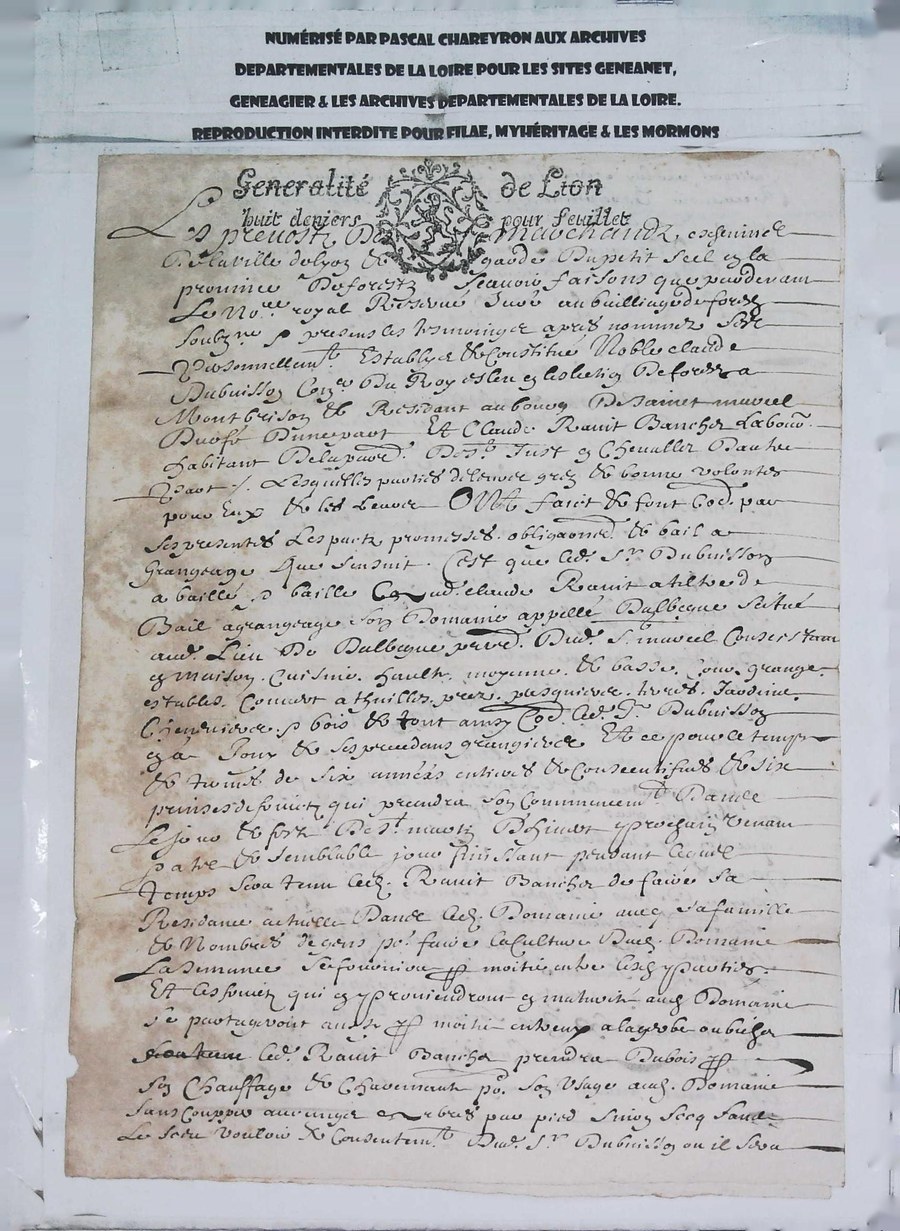 NUMÉRISÉ PAR PASCAL CHAREYRON AUX ARCHIVES
DEPARTEMENTALES DE LA LOIRE POUR LES SITES GENEANET,
GENEAGIER & LES ARCHIVES DEPARTEMENTALES DE LA LOIRE.
REPRODUCTION INTERDITE POUR FILAE, MYHÉRITAGE & LES MORMONS
Generalité de Lion
huit deniers pour feuillet
Les prevost Des marchandz, eschevinés
De la ville de lyon & garde Du petit Seel en la
province De forestz Scavoir faisons que pardevant
Le No.re royal Reservé Juré au bailliage de forestz
Soubz.né & presens les tesmoings apres nommez Sest
Personnellem.t Establye & Constitué Noble claude
Dubuisson Con.er Du Roy esleu en leslection De forestz a
Montbrison & Residant au bourg De Sainct marcel
D'une part Et Claude Ravit Bancher Labour.
habitant De la parr. De S.t Just en Chevallet Dautre
Part /. Lesquelles parties de leur grez & bonne volontés
pour Eux & les leurs Ont faict & font par
Ses presentes Les pactz promesses obligaons & bail a
Grangeage Que Sensuit. C'est que led. S.r Dubuisson
a baillé & baille aud. claude Ravit a tiltre de
Bail a grangeage Son Domaine appellé Dalbegue Scitué
aud. Lieu De Dalbegue parr. Dud. S. marcel Consistant
en maison. Cuisine. haulte moyenne & basse. Cour grange
estables. Couvert a thuilles prez. pasquiers. terres. Jardins
Chenevier & bois & tout ainsy led. S.r Dubuisson
en a Jouy & ses precedans grangiers Et ce pour le temps
& terme de Six années entieres & Consecutifves & Six
prinses de fruictz qui prendra Son Commencem.t Dans
Le jour & feste De S.t martin D'hivert prochain Venant
pareil & Semblable jour finissant pendant lequel
temps Sera tenu led. Ravit Bancher de faire Sa
Residance actuelle Dans led. Domaine avec Sa famille
& Nombres de gens p.r faire la Culture Dud. Domaine
La Semance Se fournira par moitié entre lesd. parties.
Et les fruictz qui en proviendront en maturité aud. Domaine
Se partageront aussy par moitié entreux a la gerbe ou bichet
led. Ravit Bancher prendra Dubois pr
Son Chauffage & Chavernant p.r Son Usage aud. Domaine
Sans Coupper aucungs arbres par pied Sinon Secq Sans
Le Sceu Vouloir & Consentem.t Dud. S.r Dubuisson ou il Sera